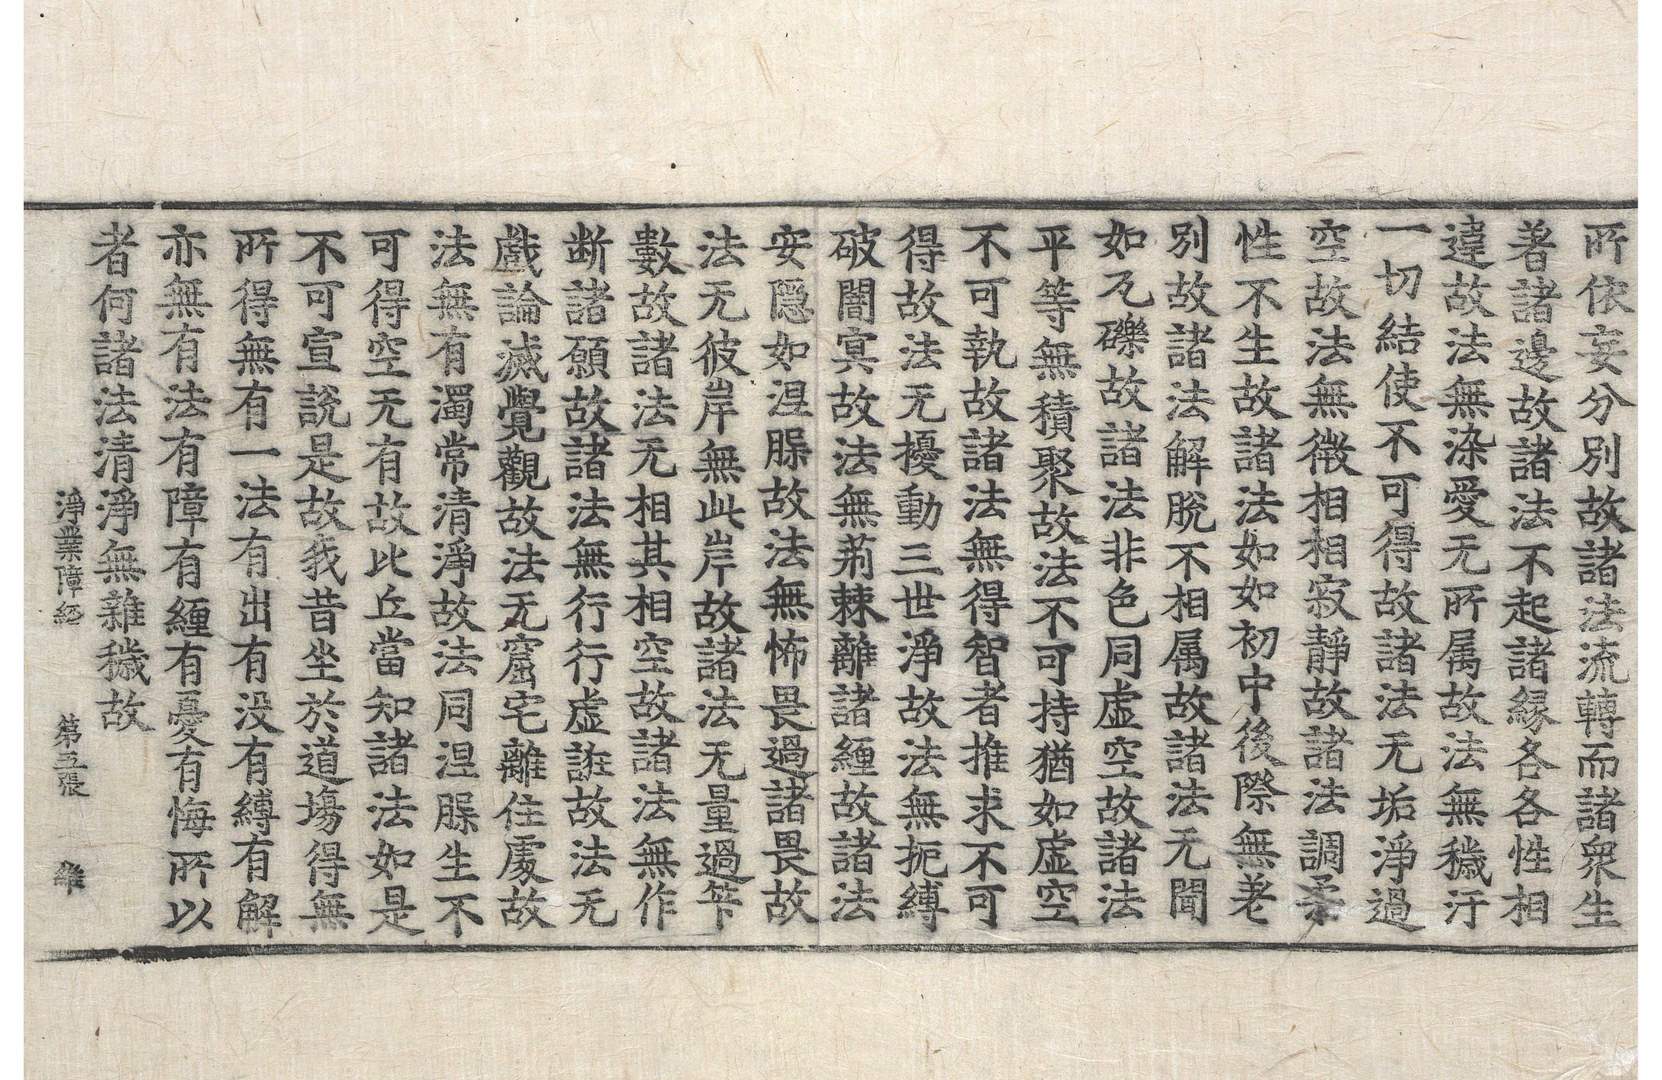 所依妄分別故諸法流轉而諸衆生
著諸邊故諸法不起諸緣各各性相
違故法無染愛无所属故法無穢汙
一切結使不可得故諸法无垢淨過
空故法無徵相相寂靜故諸法調柔
性不生故諸法如如初中後際無差
別故諸法解脫不相属故諸法无閡
如瓦礫故諸法非色同虛空故諸法
平等無積聚故法不可持猶如虛空
不可執故諸法無得智者推求不可
得故法无擾動三世淨故法無扼縛
破闇冥故法無荊棘離諸纏故諸法
安隱如涅槃故法無怖畏過諸畏故
法无彼岸無此岸故諸法无量過筭
數故諸法无相其相空故諸法無作
斷諸願故諸法無行行虛誑故法无
戲論滅覺觀故法无窟宅離住處故
法無有濁常清淨故法同涅槃生不
可得空无有故比丘當知諸法如是
不可宣說是故我昔坐於道場得無
所得無有一法有出有没有縛有解
亦無有法有障有纏有憂有悔所以
者何諸法清淨無雜穢故
淨業障經 第五張 維